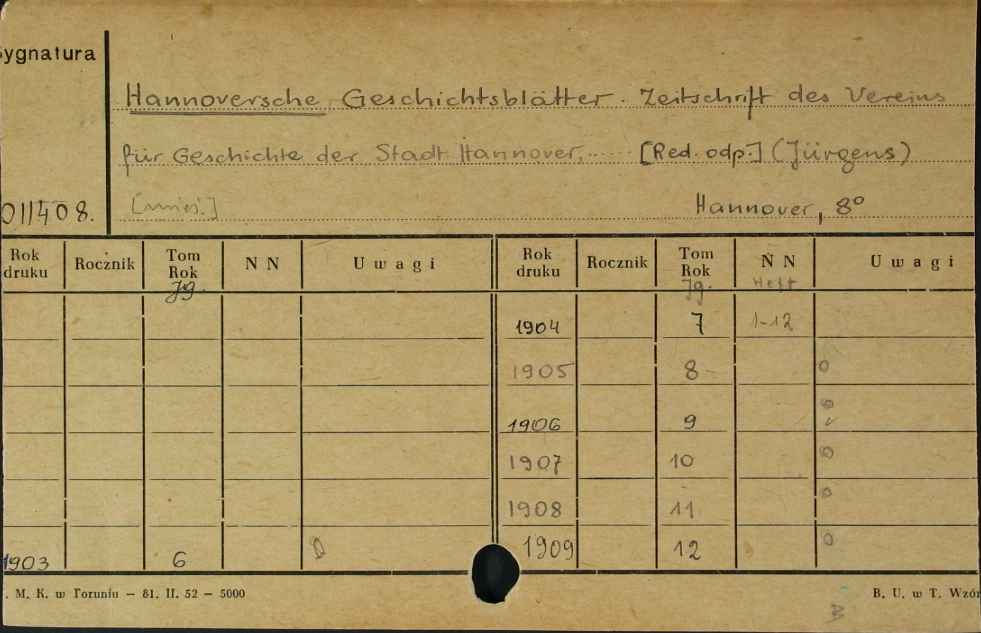 Sygnatura
Hannoversche Geschichtsblätter. Zeitschrift des Vereins
für Geschichte der Stadt Hannover, [Red. odp.] (Jürgens)
011408. [mies.] Hannover, 8º
Rok druku Rocznik Tom Rok N N Uwagi Rok druku Rocznik Tom Rok N N Uwagi
Jg. Jg. Heft
1904 7 1-12
1905 8 0
1906 9
1907 10 0
1908 11 0
1903 6 0 1909 12 0
. M. K. w Toruniu — 81. II. 52 — 5000 B. U. w T. Wzór